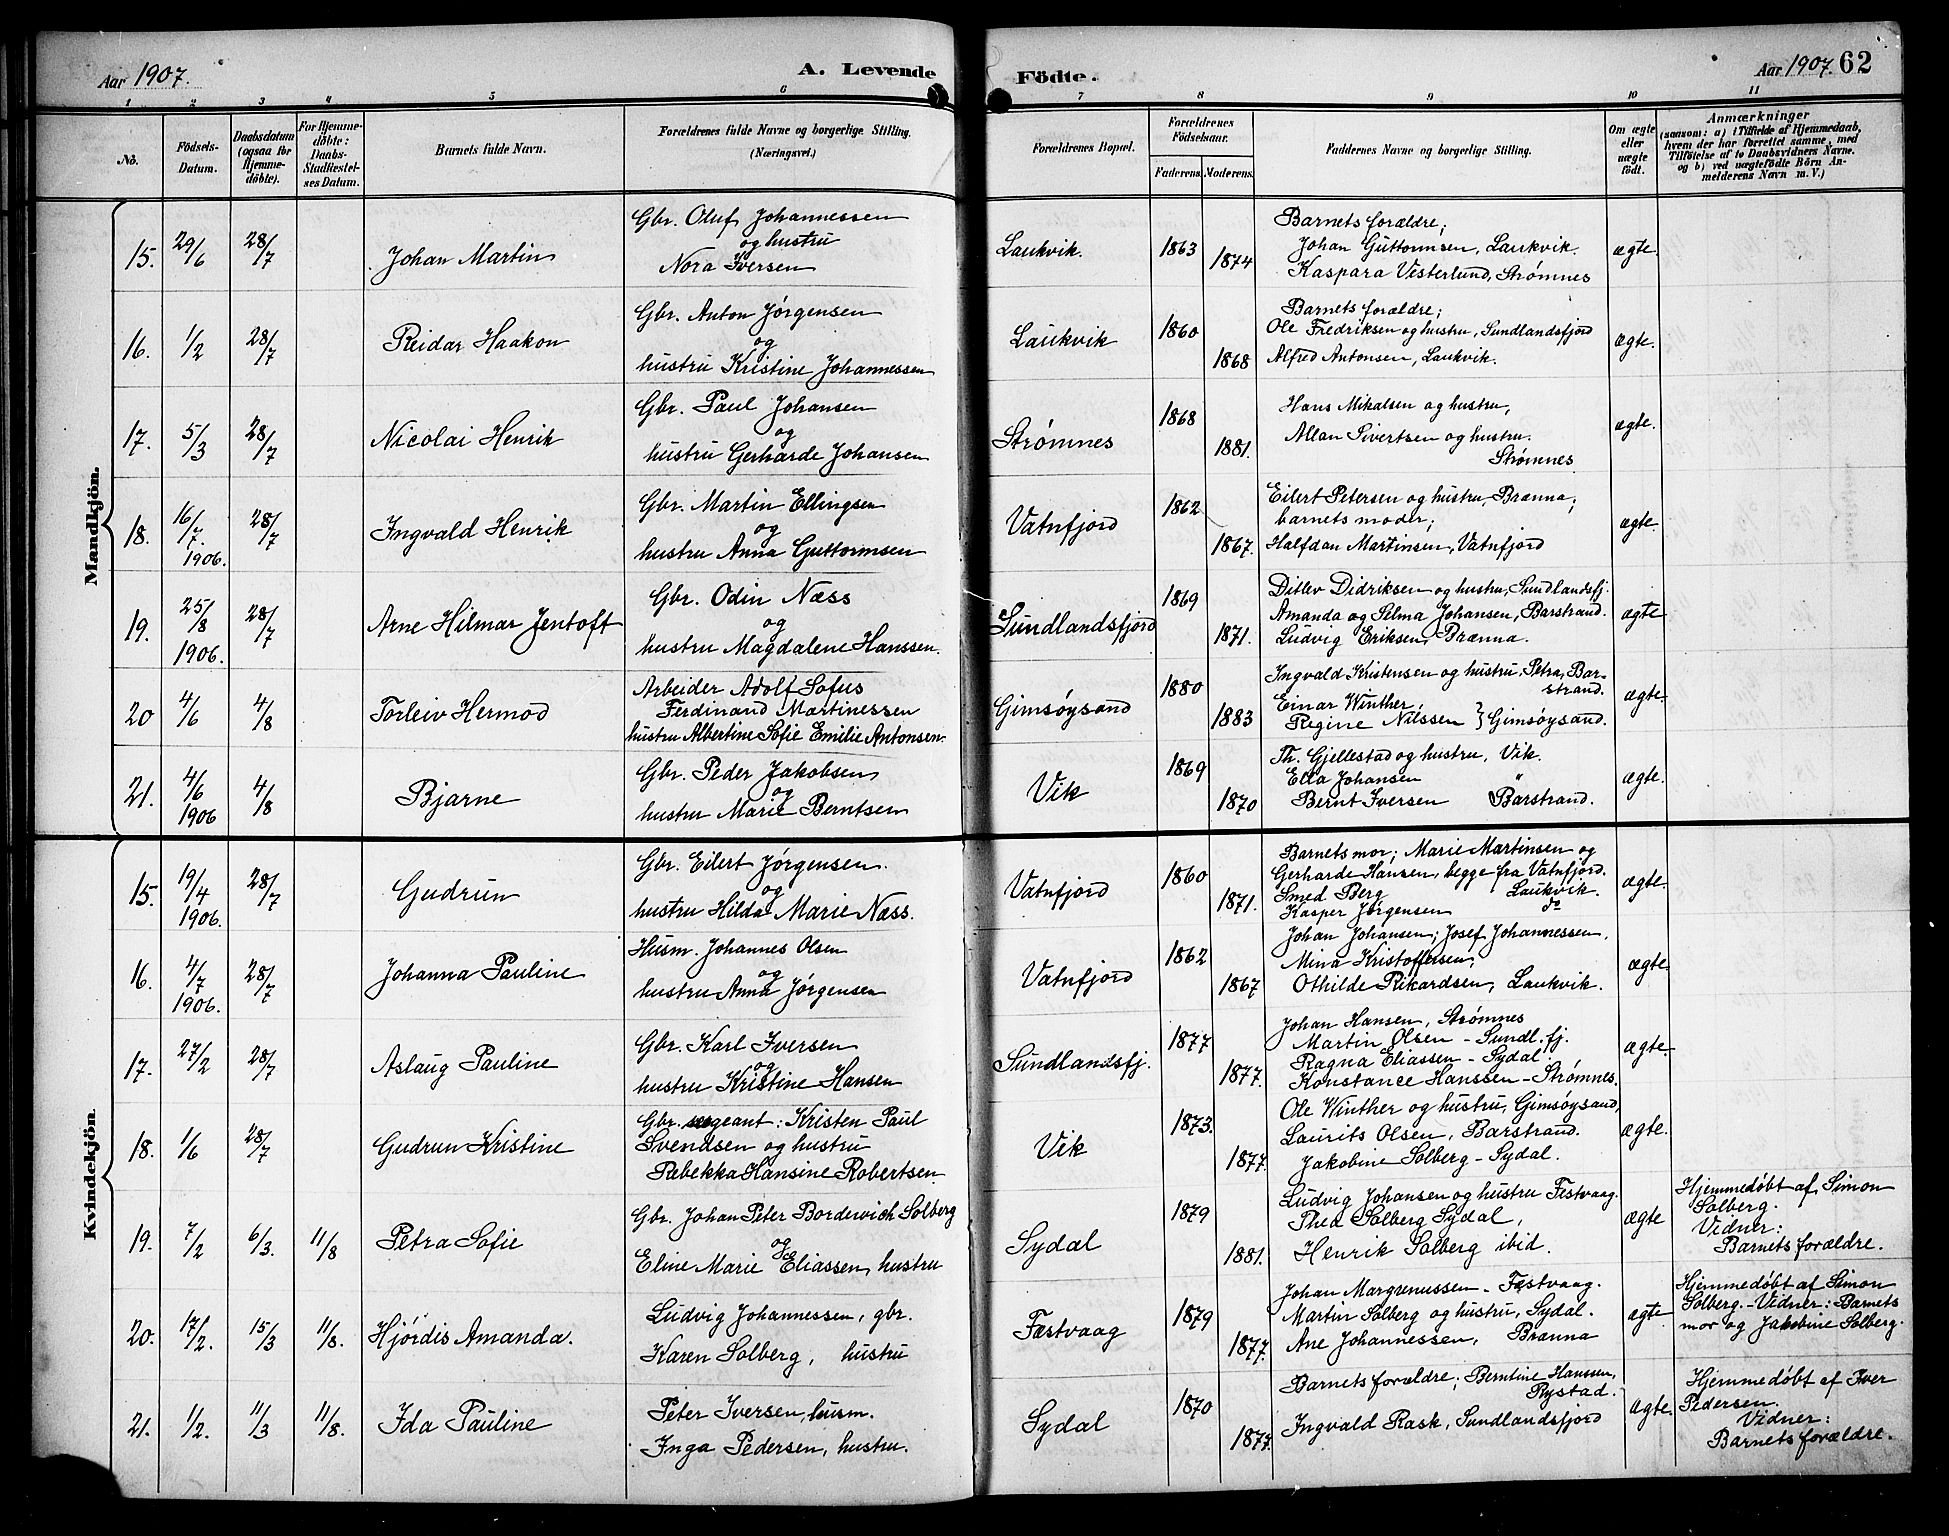 Aar 1907.
A. Levende Födte.
Aar 1907. 62
1 2 3 4 5 6 7 8 9 10 11
No.
Födsels-
Datum.
Daabsdatum
(ogsaa for
Hjemme-
döbte).
For Hjemme-
döbte:
Daabs-
Stadfæstel-
ses Datum.
Barnets fulde Navn.
Forældrenes fulde Navne og borgerlige Stilling.
(Næringsvei.)
Forældrenes Bopæl.
Forældrenes
Födselsaar.
Faderens. Moderens.
Faddernes Navne og borgerlige Stilling.
Om ægte
eller
uægte
födt.
Anmærkninger
(saasom: a) i Tilfælde af Hjemmedaab,
hvem der har forrettet samme, med
Tilföielse af to Daabsvidners Navne.
og b) ved uægtefödte Börn An-
melderens Navn m. V.)
Mandkjön.
15. 29/6 28/7 Johan Martin
Gbr. Oluf Johannessen
og hustru
Nora Iversen
Laukvik. 1863 1874
Barnets forældre;
Johan Guttormsen, Laukvik.
Kaspara Vesterlund, Strømnes
ægte.
16. 1/2 28/7 Reidar Haakon
Gbr. Anton Jørgensen
og
hustru Kristine Johannessen
Laukvik 1860 1868
Barnets forældre;
Ole Fredriksen og hustru, Sundlandsfjord
Alfred Antonsen, Laukvik.
ægte.
17. 5/3 28/7 Nicolai Henrik
Gbr. Paul Johansen
og
hustru Gerharde Johansen
Strømnes 1868 1881.
Hans Mikalsen og hustru,
Allan Sivertsen og hustru.
Strømnes
ægte.
18. 16/7 1906. 28/7 Ingvald Henrik
Gbr. Martin Ellingsen
og
hustru Anna Guttormsen
Vatnfjord 1862 1867.
Eilert Petersen og hustru, Brænna;
barnets moder;
Halfdan Martinsen, Vatnfjord
ægte.
19. 25/8 1906. 28/7 Arne Hilmar Jentoft
Gbr. Odin Næss
og
hustru Magdalene Hanssen.
Sundlandsfjord 1869 1871.
Ditlev Didriksen og hustru, Sundlandsfj.
Amanda og Selma Johansen, Barstrand.
Ludvig Eriksen, Brænna.
ægte
20 4/6 4/8 Torleiv Hermod
Arbeider Adolf Sofus
Ferdinand Martinessen
hustru Albertine Sofie Emilie Antonsen.
Gimsøysand 1880 1883
Ingvald Kristensen og hustru, Petra, Bar-
strand.
Einar Winther
Regine Nilssen } Gimsøysand.
ægte.
21. 4/6 1906 4/8 Bjarne
Gbr. Peder Jakobsen
og
hustru Marie Berntsen
Vik 1869 1870
Th. Gjellestad og hustru, Vik.
Ella Johansen "
Bernt Iversen Barstrand.
ægte.
Kvindekjön.
15. 19/4 1906. 28/7 Gudrun
Gbr. Eilert Jørgensen.
og
hustru Hilda Marie Næss.
Vatnfjord 1860 1871.
Barnets mor; Marie Martinsen og
Gerharde Hansen, begge fra Vatnfjord.
Smed Berg Laukvik.
Kasper Jørgensen do
ægte.
16. 4/7 1906. 28/7 Johanna Pauline
Husm. Johannes Olsen
og
hustru Anna Jørgensen
Vatnfjord 1862 1867
Johan Johansen; Josef Johannessen,
Mina Kristoffersen;
Othilde Rikardsen, Laukvik.
ægte
17. 27/2 28/7 Aslaug Pauline
Gbr. Karl Iversen
og
hustru Kristine Hansen
Sundlandsfj. 1877 1877.
Johan Hansen, Strømnes
Martin Olsen - Sundl.fj.
Ragna Eliassen - Sydal.
Konstance Hanssen - Strømnes.
ægte
18. 1/6 28/7 Gudrun Kristine
Gbr. sergeant: Kristen Paul
Svendsen og hustru
Rebekka Hansine Robertsen
Vik 1873. 1877.
Ole Winther og hustru, Gimsøysand,
Laurits Olsen, Barstrand.
Jakobine Solberg - Sydal.
ægte.
19. 7/2 6/3. 11/8 Petra Sofie
Gbr. Johan Peter Bordewich Solberg
og
Eline Marie Eliassen, hustru
Sydal 1879 1881.
Ludvig Johansen og hustru Festvaag.
Thea Solberg Sydal,
Henrik Solberg ibid.
ægte
Hjemmedøbt af Simon
Solberg.
Vidner:
Barnets forældre.
20. 17/2. 15/3 11/8. Hjørdis Amanda.
Ludvig Johannessen, gbr.
Karen Solberg, hustru
Fæstvaag 1879 1877.
Johan Margrenussen - Fæstvaag.
Martin Solberg og hustru, Sydal.
Ane Johannessen, Brænna
ægte
Hjemmedøbt af Simon
Solberg. - Vidner: Barnets
mor og Jakobine Solberg.
21. 1/2. 11/3 11/8. Ida Pauline
Peter Iversen, husm.
Inga Pedersen, hustru.
Sydal 1870 1877.
Barnets forældre; Berntine Hanssen,
Rystad.
Ingvald Rask, Sundlandsfjord
ægte.
Hjemmedøbt af Iver
Pedersen.
Vidner:
Barnets forældre.